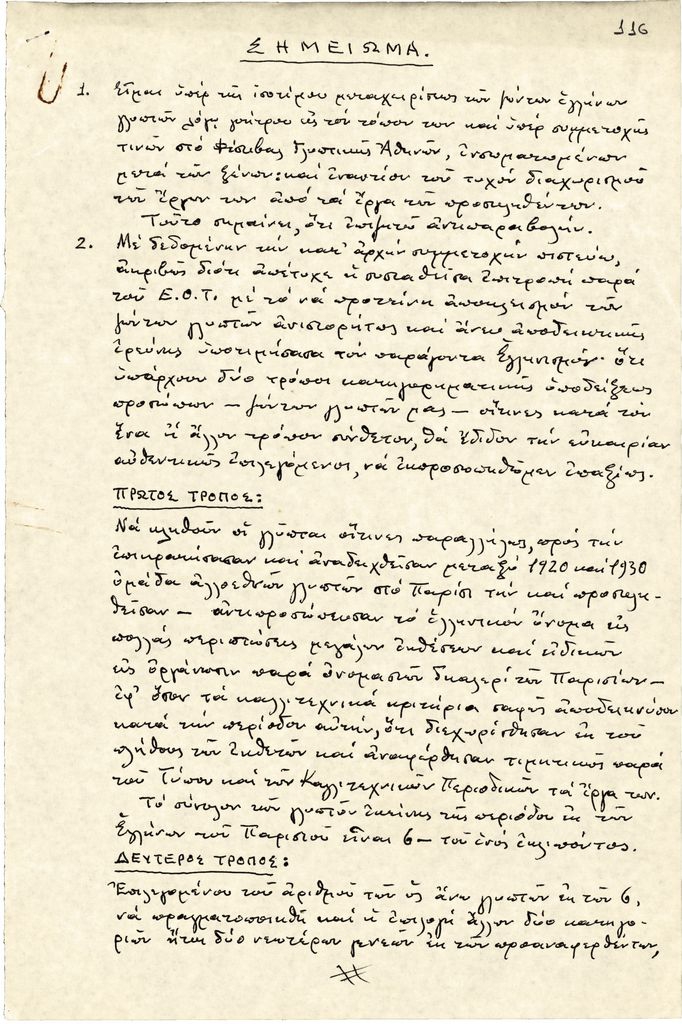 116
ΣΗΜΕΙΩΜΑ.
1. Εἶμαι ὑπέρ τῆς ἰσοτίμου μεταχειρίσεως τῶν ζώντων ἑλλήνων
γλυπτῶν λόγῳ γοήτρου εἰς τόν τόπον των καί ὑπέρ συμμετοχῆς
τινῶν στό Φέστιβαλ Γλυπτικῆς Ἀθηνῶν, ἐνσωματωμένων
μετά τῶν ξένων: καί ἐναντίον τοῦ τυχόν διαχωρισμοῦ
τῶν ἔργων των ἀπό τά ἔργα τῶν προσκληθέντων.
Τοῦτο σημαίνει, ὅτι ἐπιζητῶ ἀντιπαραβολήν.
2. Μέ δεδομένην τήν κατ' ἀρχήν συμμετοχήν πιστεύω,
ἀκριβῶς διότι ἀπέτυχε ἡ συσταθεῖσα ἐπιτροπή παρά
τοῦ Ε.Ο.Τ. μέ τό νά προτείνῃ ἀποκλεισμόν τῶν
ζώντων γλυπτῶν ἀνιστορήτως καί ἄνευ ἀποδεικτικῆς
ἐρεύνης ὑποτιμήσασα τόν παράγοντα Ἑλληνισμόν· ὅτι
ὑπάρχουν δύο τρόποι κατηγορηματικῆς ὑποδείξεως
προσώπων — ζώντων γλυπτῶν μας — οἵτινες κατά τόν
ἕνα ἤ ἄλλον τρόπον σύνθετον, θά ἔδιδον τήν εὐκαιρίαν
αὐθεντικῶς ἐπιλεγόμενοι, νά ἐκπροσωπηθῶμεν ἐπαξίως.
ΠΡΩΤΟΣ ΤΡΟΠΟΣ:
Νά κληθοῦν οἱ γλύπται οἵτινες παραλλήλως, πρός τήν
ἐπικρατήσασαν καί ἀναδειχθεῖσαν μεταξύ 1920 καί 1930
ὁμάδα ἀλλοεθνῶν γλυπτῶν στό Παρίσι τήν καί προσκλη-
θεῖσαν — ἀντιπροσώπευσαν τό ἑλληνικόν ὄνομα εἰς
πολλάς περιστώσεις μεγάλων ἐκθέσεων καί εἰδικῶν
εἰς ὀργάνωσιν παρά ὀνομαστῶν Γκαλερί τῶν Παρισίων —
ἐφ' ὅσον τά καλλιτεχνικά κριτήρια σαφῶς ἀποδεικνύουν
κατά τήν περίοδον αὐτήν, ὅτι διεχωρίσθησαν ἐκ τοῦ
πλήθους τῶν ἐκθετῶν καί ἀναφέρθησαν τιμητικῶς παρά
τοῦ Τύπου καί τῶν Καλλιτεχνικῶν Περιοδικῶν τά ἔργα των.
Τό σύνολον τῶν γλυπτῶν ἐκείνης τῆς περιόδου ἐκ τῶν
Ἑλλήνων τοῦ Παρισιοῦ εἶναι 6 — τοῦ ἑνός ἐκλιπόντος.
ΔΕΥΤΕΡΟΣ ΤΡΟΠΟΣ:
Ἐπιλεγομένου τοῦ ἀριθμοῦ τῶν ὡς ἄνω γλυπτῶν ἐκ τῶν 6,
νά πραγματοποιηθῆ καί ἡ ἐπιλογή ἄλλων δύο κατηγο-
ριῶν ἤτοι δύο νεωτέρων γενεῶν ἐκ τῶν προαναφερθέντων,